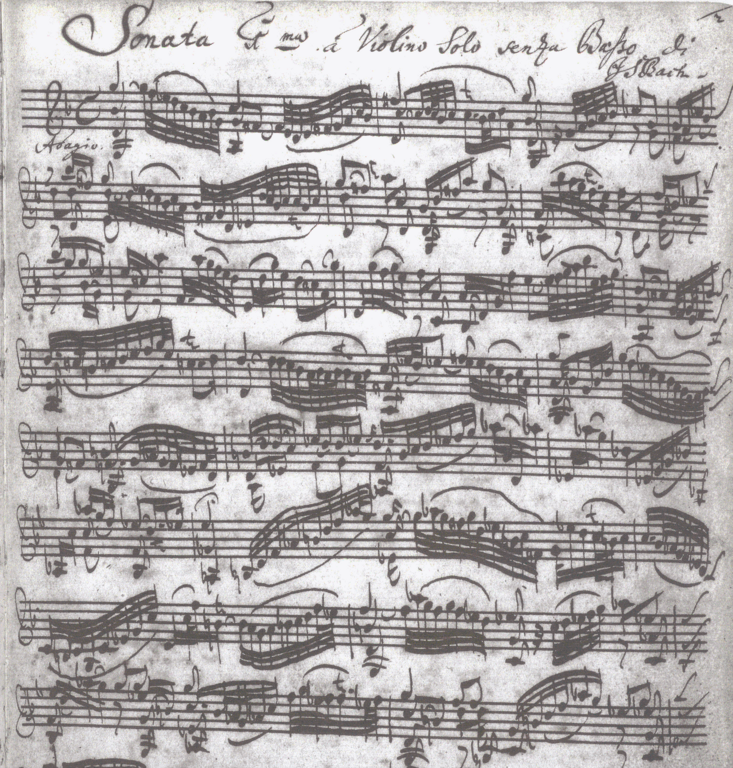 Sonata 1ma à Violino Solo senza Baßo di
JSBach.
Adagio.